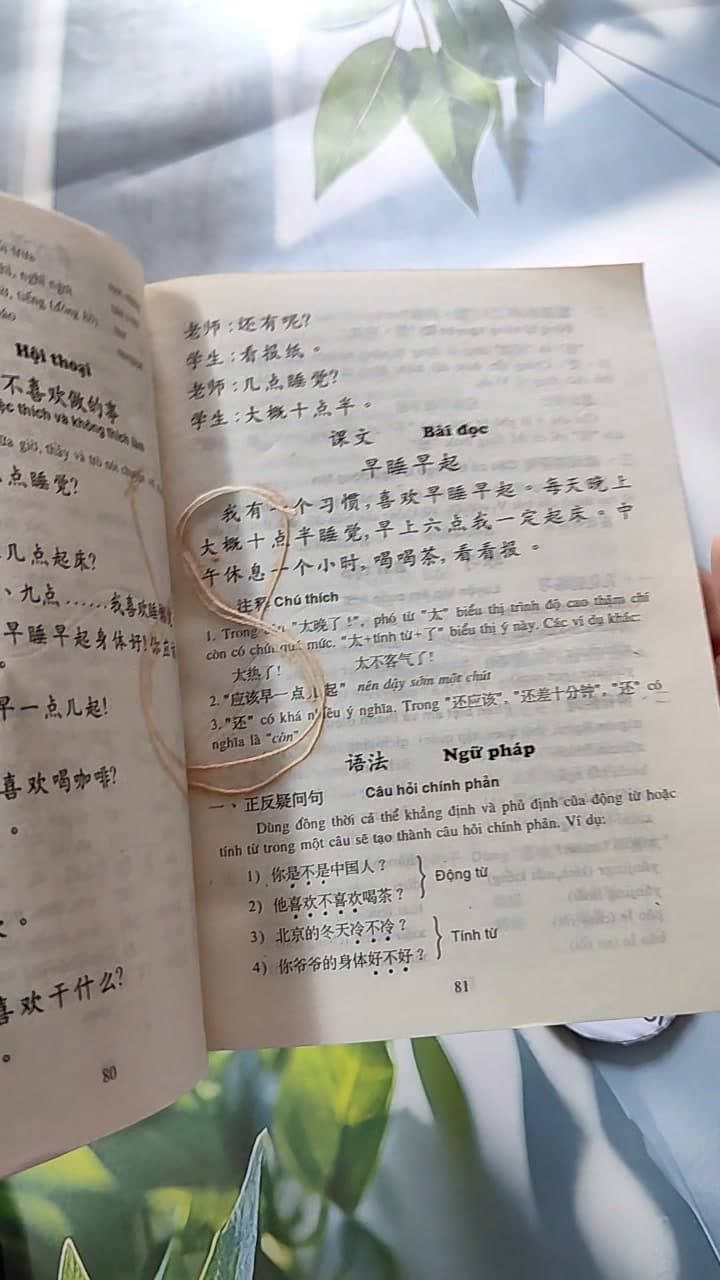 Hội thoại
不喜欢做的事
点睡觉?
几点起床?
、九点……我喜欢睡
早睡早起身体好!
早一点儿起!
喜欢喝咖啡?
。
喜欢干什么?
。
80
老师:还有呢?
学生:看报纸。
老师:几点睡觉?
学生:大概十点半。
课文 Bài đọc
早睡早起
我有一个习惯,喜欢早睡早起。每天晚上
大概十点半睡觉,早上六点我一定起床。中
午休息一个小时,喝喝茶,看看报。
注释 Chú thích
1. Trong "太晚了!", phó từ "太" biểu thị trình độ cao thậm chí
còn có chút quá mức. "太+tính từ+了" biểu thị ý này. Các ví dụ khác:
太热了! 太不客气了!
2. "应该早一点儿起" nên dậy sớm một chút
3. "还" có khá nhiều ý nghĩa. Trong "还应该", "还差十分钟", "还" có
nghĩa là "còn"
语法 Ngữ pháp
一、正反疑问句 Câu hỏi chính phản
Dùng đồng thời cả thể khẳng định và phủ định của động từ hoặc
tính từ trong một câu sẽ tạo thành câu hỏi chính phản. Ví dụ:
1) 你是不是中国人?
2) 他喜欢不喜欢喝茶? Động từ
3) 北京的冬天冷不冷?
4) 你爷爷的身体好不好? Tính từ
81